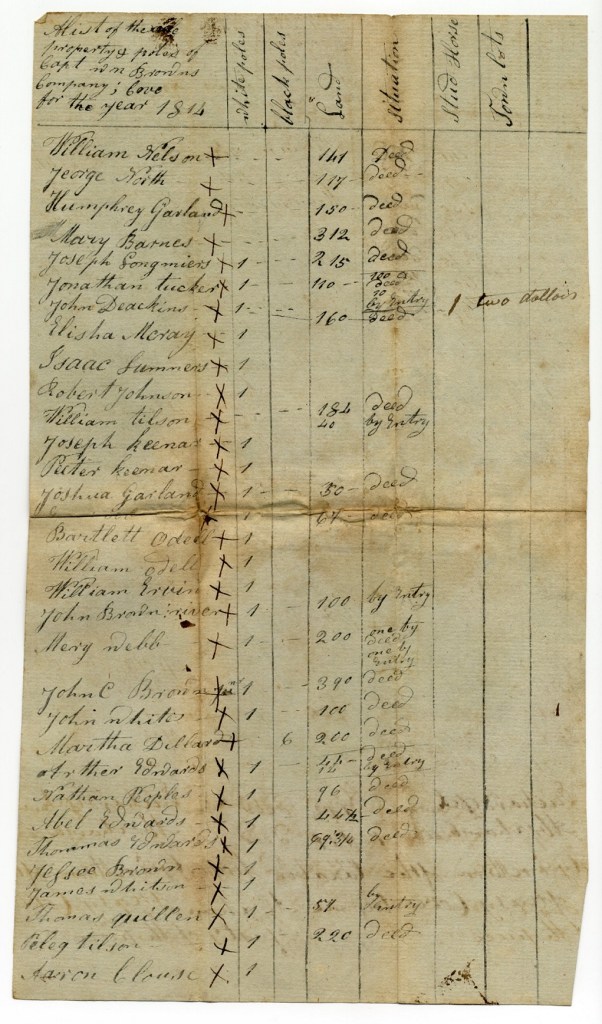 A list of the
property & poles of
Capt Wm Browns
Company; Cove
for the year 1814
white poles
black poles
Land
situation
Stud Horse
Town Lots
William Nelson + 141 Deed
George North + 117 deed
Humphrey Garland + 150 deed
Mary Barnes + 312 deed
Joseph Longmiers + 1 215 deed
Jonathan tucker + 1 110 100 deed
10 by Entry
John Deackins + 1 160 deed 1 two dollars
Elisha Meray + 1
Isaac Sumners + 1
Robert Johnson + 1
William tilson + 184 deed
40 by Entry
Joseph keenar + 1
Peter keenar + 1
Joshua Garland + 1 50 deed
1 67 deed
Bartlett Odell + 1
William odell + 1
William Ervin + 1
John Brown river + 1 100 by Entry
Mery webb + 1 200 one by
deed
one by
Entry
John C Brown + 1 390 deed
John whites + 1 100 deed
Martha Dillard + 6 200 deed
Arther Edwards + 1 44 deed
14 by Entry
Nathan Peoples + 1 96 deed
Abel Edwards + 1 44½ deed
Thommas Edwards + 1 69 3/4 deed
Jessoe Brown + 1
James whitson + 1
Thomas quillen + 1 54 by
Entry
Peleg tilson + 1 220 deed
Aaron Clouse + 1